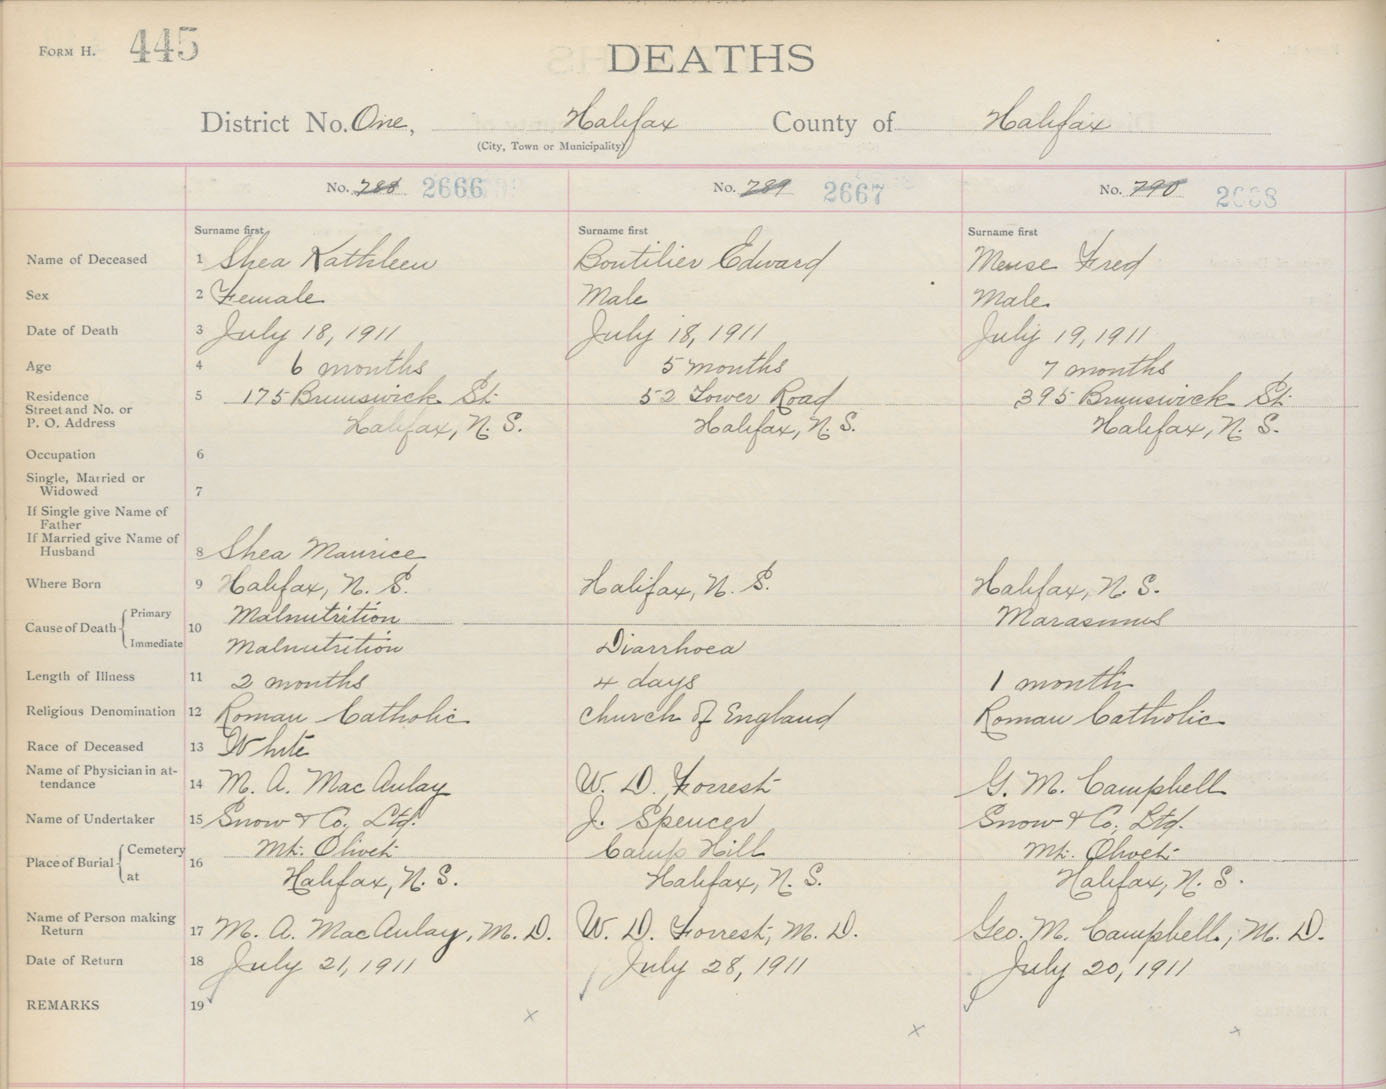 FORM H. 445
DEATHS
District No. One, Halifax County of Halifax
(City, Town or Municipality)
No. 788 2666 No. 789 2667 No. 790 2668
Surname first Surname first Surname first
Name of Deceased 1 Shea Kathleen Boutilier Edward Meuse Fred
Sex 2 Female Male Male
Date of Death 3 July 18, 1911 July 18, 1911 July 19, 1911
Age 4 6 months 5 months 7 months
Residence 5 175 Brunswick St. 52 Tower Road 395 Brunswick St.
Street and No. or
P. O. Address Halifax, N. S. Halifax, N. S. Halifax, N. S.
Occupation 6
Single, Married or
Widowed 7
If Single give Name of
Father
If Married give Name of
Husband 8 Shea Maurice
Where Born 9 Halifax, N. S. Halifax, N. S. Halifax, N. S.
Primary Malnutrition Marasmus
Cause of Death 10
Immediate Malnutrition Diarrhoea
Length of Illness 11 2 months 4 days 1 month
Religious Denomination 12 Roman Catholic Church of England Roman Catholic
Race of Deceased 13 White
Name of Physician in at-
tendance 14 M. A. MacAulay W. D. Forrest G. M. Campbell
Name of Undertaker 15 Snow & Co. Ltd. J. Spencer Snow & Co., Ltd.
Cemetery Mt. Olivet Camp Hill Mt. Olivet
Place of Burial 16
at Halifax, N. S. Halifax, N. S. Halifax, N. S.
Name of Person making
Return 17 M. A. MacAulay, M. D. W. D. Forrest, M. D. Geo. M. Campbell, M. D.
Date of Return 18 July 21, 1911 July 28, 1911 July 20, 1911
REMARKS 19
x x x